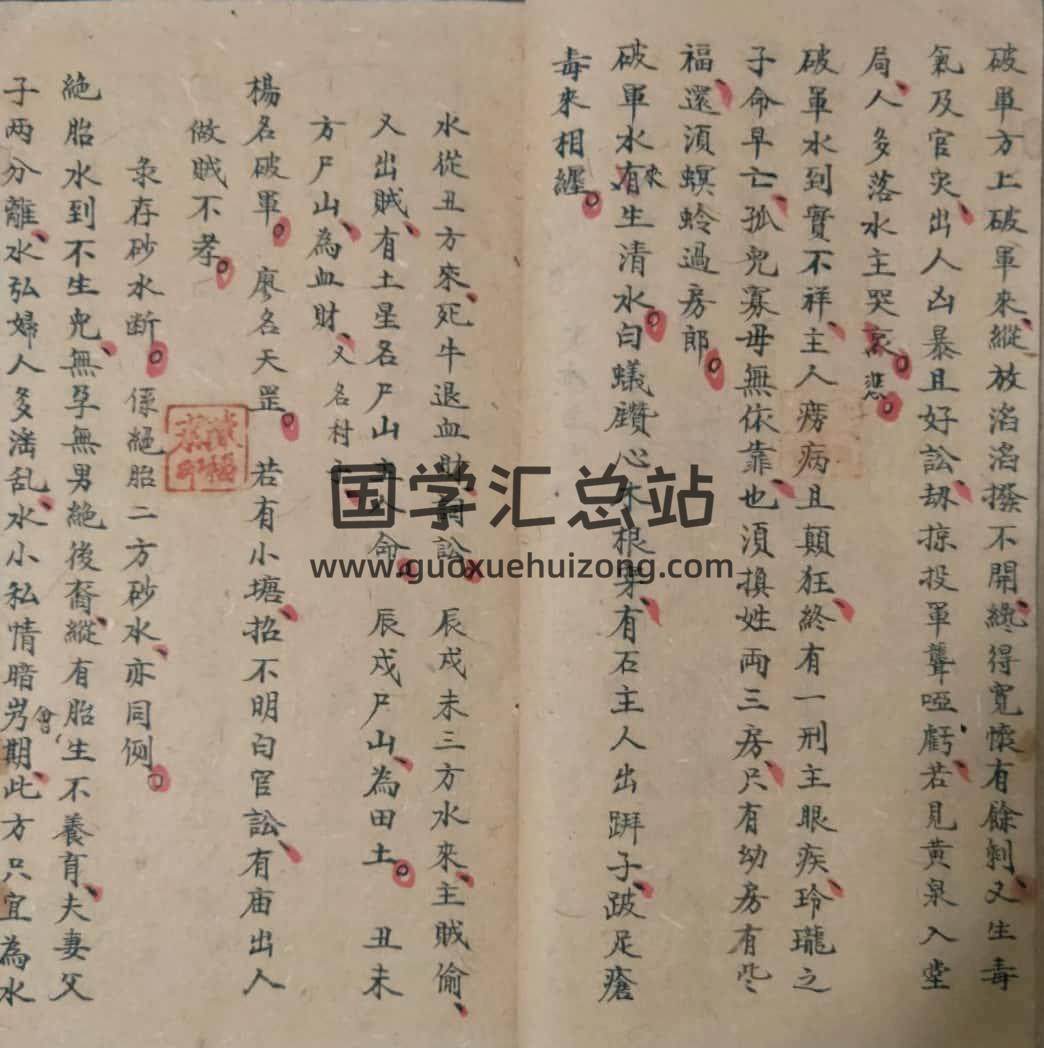 破軍方上破軍來縱放滔滔撥不開纔得寬懷有餘剩又生毒
氣及官灾出人凶暴且好訟刧掠投軍聾啞虧若見黄泉入堂
局人多落水主哭哀悲
破軍水到實不祥主人癆病且顛狂終有一刑主眼疾玲瓏之
子命早亡孤兒寡毋無依靠也湏換姓両三房只有幼房有些
福還湏螟蛉過房郎
破軍水有來生清水白蟻鑽心木根有石主人出跰子跛足瘡
毒來相纏
水從丑方來死牛退血財詞訟辰戍未三方水來主賊偷
又出賊有土星名尸山主人命辰戍尸山為田土丑未
方尸山為血財又名村
楊名破軍廖名天罡若有小塘招不明白官訟有庙出人
做賊不孝
彔存砂水断係絕胎二方砂水亦同例
絕胎水到不生兒無孕無男絕後裔縱有胎生不養育夫妻父
子两分離水弘婦人多滛乱水小私情暗會期此方只宜為水
國藏
国学汇总站
www.guoxuehuizong.com